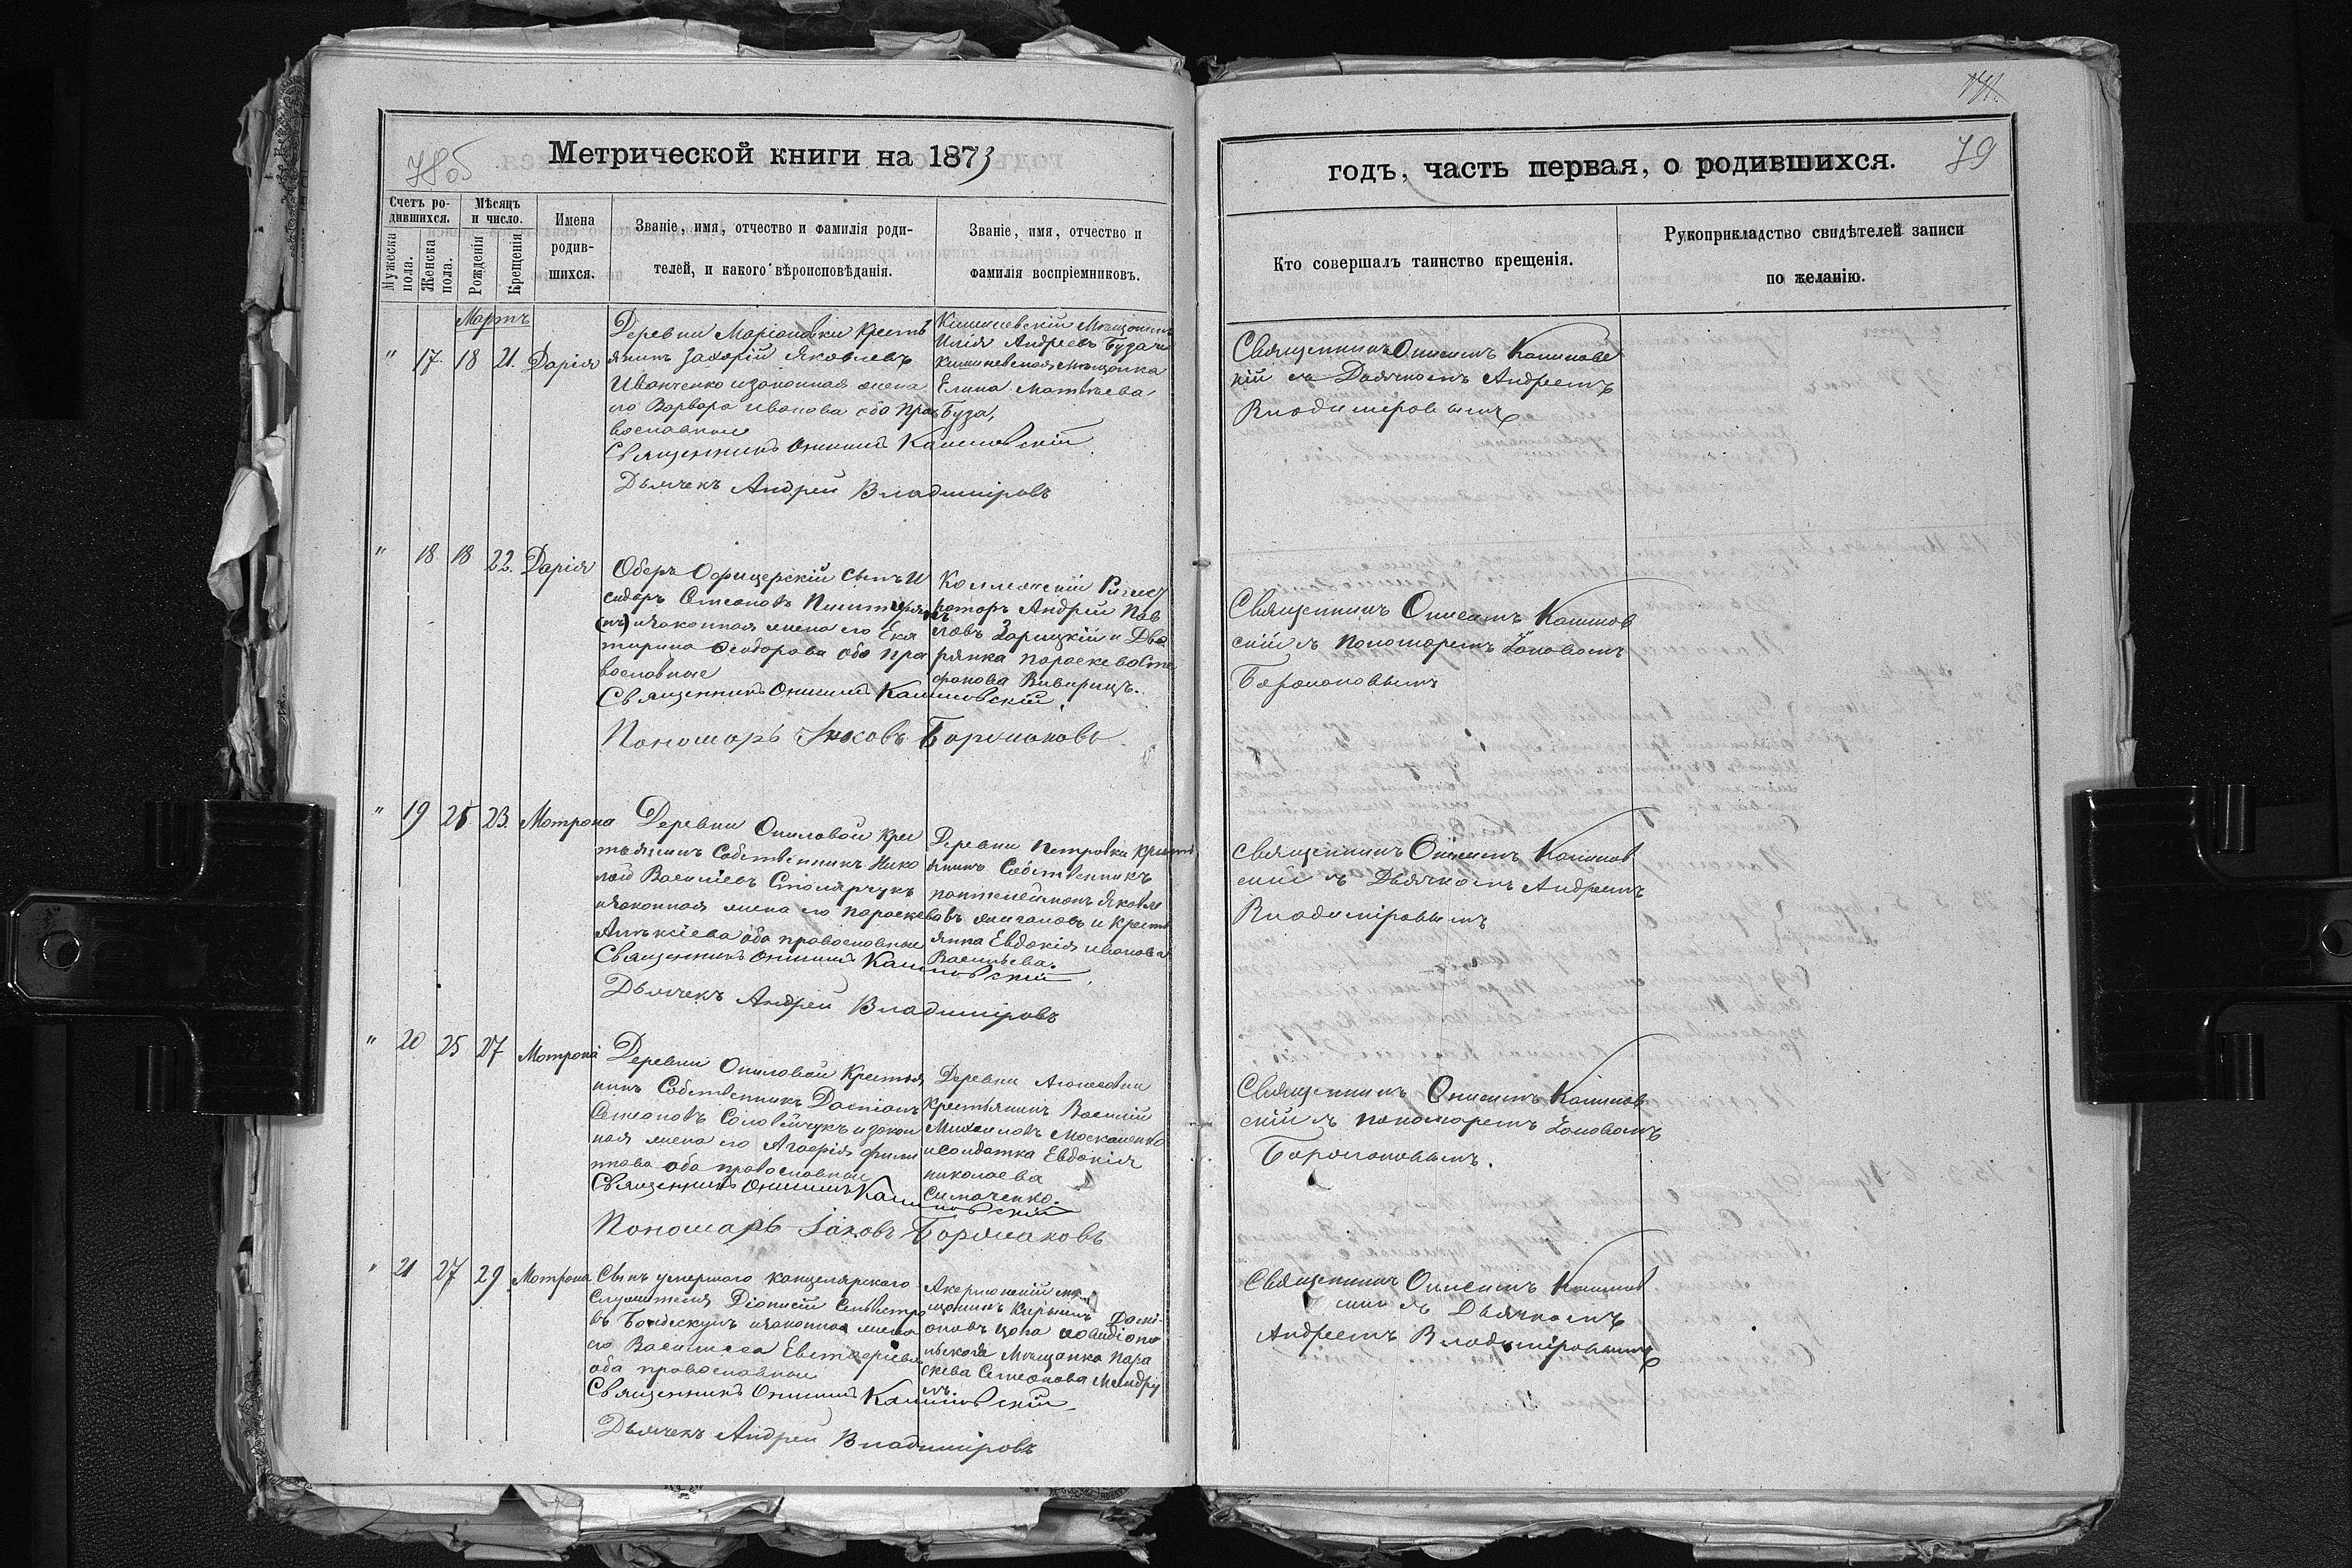 Метрической книги на 1873
78об
Счетъ ро-
дившихся.
Мужеска
пола.
Женска
пола.
Мѣсяцъ
и число.
Рожденія
Крещенія
Имена
родив-
шихся.
Званіе, имя, отчество и фамилія роди-
телей, и какого вѣроисповѣданія.
Званіе, имя, отчество и
фамилія воспріемниковъ.
Мартъ
" 17. 18 21. Дарія
Деревни Маріановки Кресть
янинъ Захарій Яковлевъ
Иванченко изаконная жена
его Варвара Иванова оба пра
вославные
Священникъ Онисимъ Кашиовскій
Дьячекъ Андрей Владиміровъ
Кишиневскій Мѣщанинъ
Илія Андреевъ Буза и
Кишиневская Мѣщанка
Елена Матвѣева
Буза,
" 18 18 22. Дарія
Оберъ Офицерскій сынъ И
сидоръ Стефановъ
изаконная жена его Ека
терина Ѳеодорова оба пра
вославные
Священникъ Онисимъ Кашиовскій.
Пономарь Іаковъ Боромаковъ
Коллежскій Регист
раторъ Андрей Пав
ловъ Зарицкій и Дво
рянка Параскева Сте
фанова
" 19 23. Матрона
Деревни Ониловой Крес
тьянинъ Собственникъ Нико
лай Василіевъ Столярчукъ
изаконная жена его Параскева
Алексіева оба православные
Священникъ Онисимъ Кашиовскій.
Дьячекъ Андрей Владиміровъ
Деревни Петровки Кресть
янинъ Собственникъ
Пантелеймонъ Яковле
въ и Кресть
янка Евдокія Иванова
Васильева.
" 20 25 27 Матрона
Деревни Ониловой Крестья
нинъ Собственникъ Даміанъ
Стефановъ Соловейчукъ изакон
ная жена его Агафія Фили
пова оба православные
Священникъ Онисимъ Кашиовскій
Пономарь Іаковъ Боромаковъ
Деревни
Крестьянинъ Василій
Михаиловъ Москаленко
исолдатка Евдокія
Николаева
Симаченко.
" 21 27 29. Матрона
Сынъ умершаго Канцелярскаго
Служителя Діонисій Сильвестро
въ изаконная жена
его Василиса Евстафіева
оба православные
Священникъ Онисимъ Кашиовскій
Дьячекъ Андрей Владиміровъ
Акерманскій мѣ
щанинъ Даміа
новъ Цопа
Мѣщанка Пара
скева Стефанова
годъ, часть первая, о родившихся.
79
Кто совершалъ таинство крещенія.
Рукоприкладство свидѣтелей записи
по желанію.
Священникъ Онисимъ Кашиовс
кій съ Дьячкомъ Андреемъ
Владимеровымъ
Священникъ Онисимъ Кашиов
скій съ Пономаремъ Іаковомъ
Боромаковымъ
Священникъ Онисимъ Кашиов
скій съ Дьячкомъ Андреемъ
Владиміровымъ
Священникъ Онисимъ Кашиов
скій съ пономаремъ Іаковомъ
Боромаковымъ.
Священникъ Онисимъ Кашиов
скій съ Дьячкомъ
Андреемъ Владиміровымъ